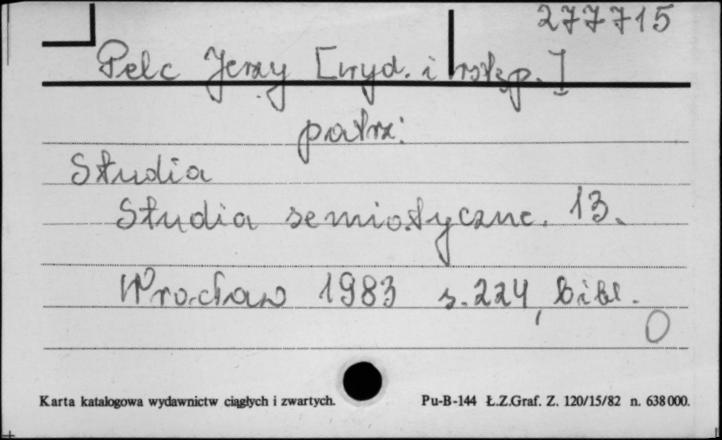 277715
Pelc Jerzy [wyd. i wstęp.]
patrz:
Studia
Studia semiotyczne. 13.
Wrocław 1983 s. 224, bibl.
0
Karta katalogowa wydawnictw ciągłych i zwartych. Pu-B-144 Ł.Z.Graf. Z. 120/15/82 n. 638000.